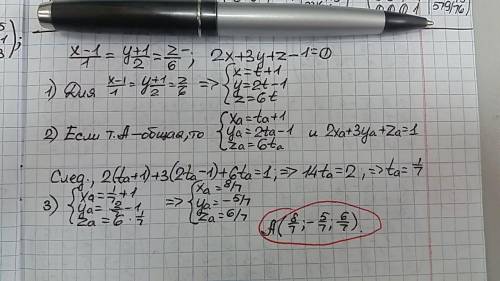 5
3);
579/76
0 0 0 1
x-1/1 = y+1/2 = z-/6; 2x+3y+z-1=0
1) Для x-1/1 = y+1/2 = z/6 => { x=t+1 y=2t-1 z=6t
2) Если т.А-общая, то { xa=ta+1 ya=2ta-1 za=6ta и 2xa+3ya+za=1
След., 2(ta+1)+3(2ta-1)+6ta=1; => 14ta=2, => ta=1/7
3) { xa=1/7+1 ya=2/7-1 za=6·1/7 => { xa=8/7 ya=-5/7 za=6/7
A(8/7; -5/7; 6/7).